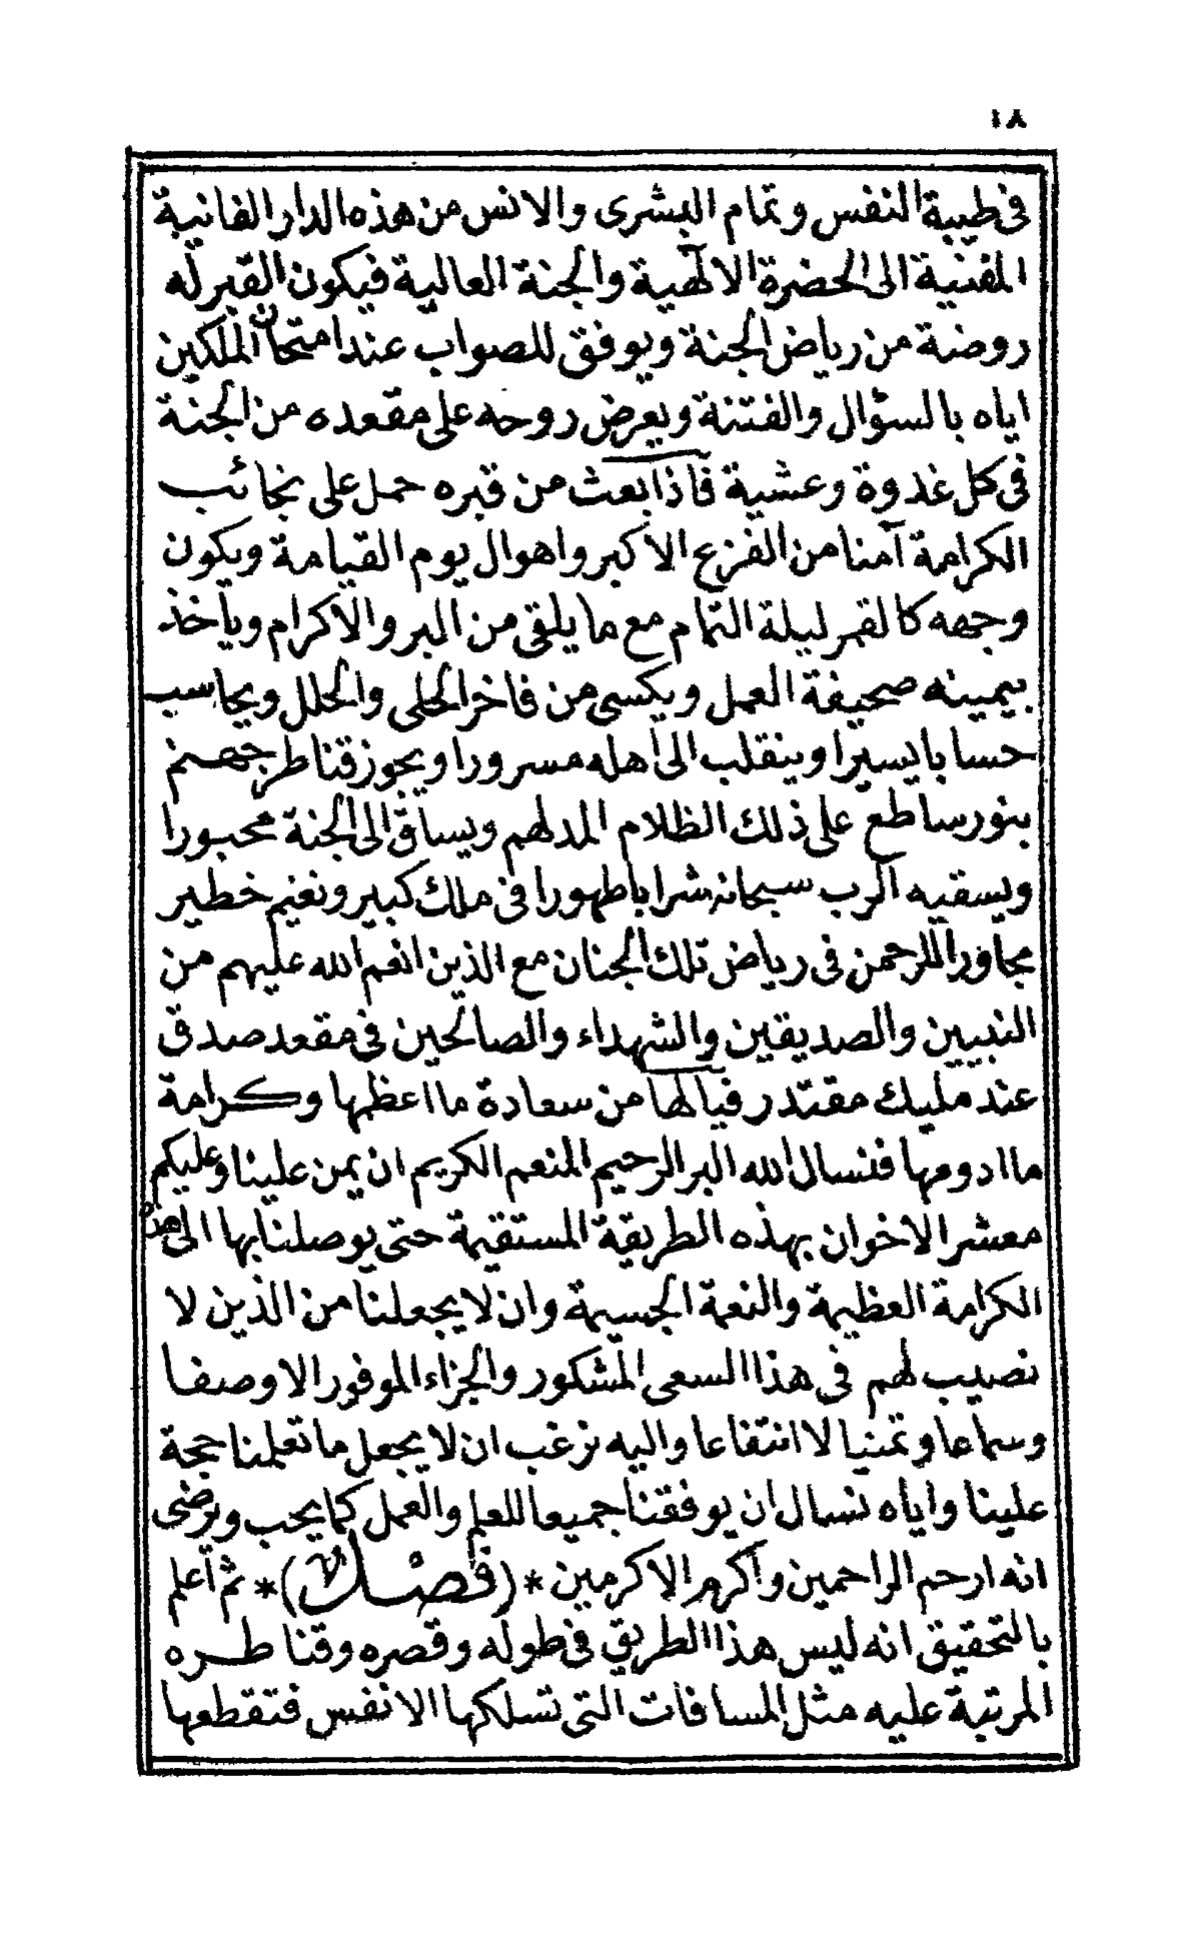 ١٨
فى طيبة النفس وتمام البشرى والانس من هذه الدار الفانية
المفنية الى الحضرة الالٓهية والجنة العالية فيكون القبر له
روضة من رياض الجنة ويوفق للصواب عند امتحان الملكين
اياه بالسؤال والفتنة ويعرض روحه على مقعده من الجنة
فى كل غدوة وعشية فاذا بعث من قبره حمل على نجائب
الكرامة آمنا من الفزع الاكبر واهوال يوم القيامة ويكون
وجهه كالقمر ليلة التمام مع ما يلقى من البر والاكرام وياخذ
بيمينه صحيفة العمل ويكسى من فاخر الحلى والحلل ويحاسب
حسابا يسيرا وينقلب الى اهله مسرورا ويجوز قناطر جهنم
بنور ساطع على ذلك الظلام المدلهم ويساق الى الجنة محبورا
ويسقيه الرب سبحانه شرابا طهورا فى ملك كبير ونعيم خطير
مجاورا للرحمن فى رياض تلك الجنان مع الذين انعم الله عليهم من
النبيين والصديقين والشهداء والصالحين فى مقعد صدق
عند مليك مقتدر فيالها من سعادة ما اعظمها وكرامة
ما ادومها فنسال الله البر الرحيم المنعم الكريم ان يمن علينا وعليكم
معشر الاخوان بهذه الطريقة المستقيمة حتى يوصلنا بها الى هذه
الكرامة العظيمة والنعمة الجسيمة وان لا يجعلنا من الذين لا
نصيب لهم فى هذا السعى المشكور والجزاء الموفور الا وصفا
وسماعا وتمنيا لا انتفاعا واليه نرغب ان لا يجعل ما تعلمنا حجة
علينا واياه نسال ان يوفقنا جميعا للعلم والعمل كما يحب ويرضى
انه ارحم الراحمين واكرم الاكرمين * (فصل) * ثم اعلم
بالتحقيق انه ليس هذا الطريق فى طوله وقصره وقناطره
المرتبة عليه مثل المسافات التى تسلكها الانفس فتقطعها